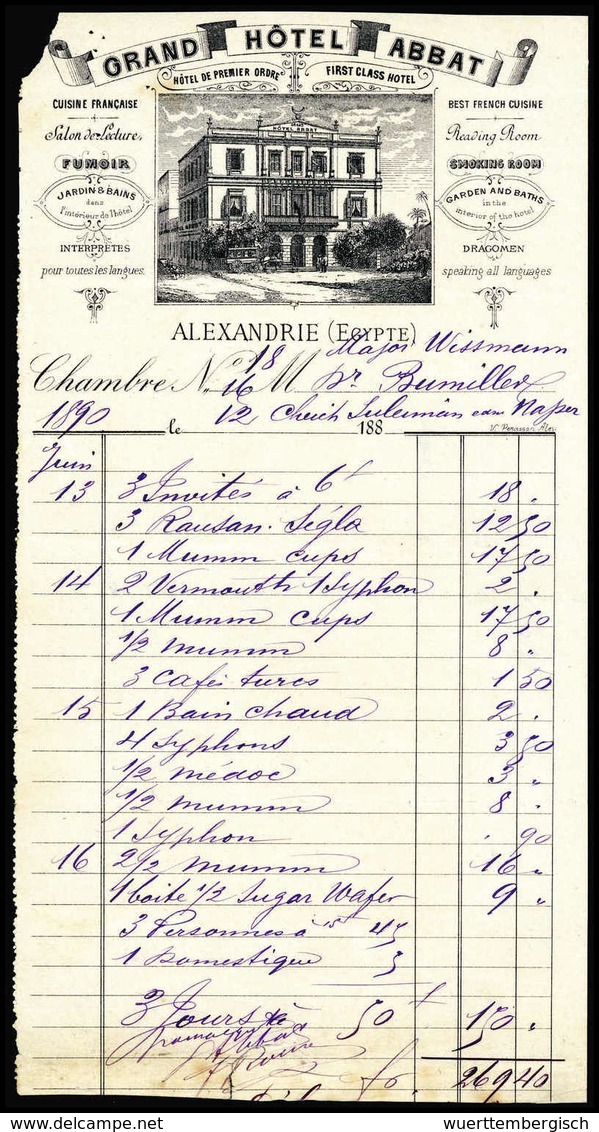 GRAND HÔTEL ABBAT
HÔTEL DE PREMIER ORDRE FIRST CLASS HOTEL
CUISINE FRANÇAISE
Salon de Lecture,
FUMOIR
JARDIN & BAINS
dans
l'intérieur de l'hôtel
INTERPRÈTES
pour toutes les langues.
HÔTEL ABBAT
BEST FRENCH CUISINE
Reading Room
SMOKING ROOM
GARDEN AND BATHS
in the
interior of the hotel
DRAGOMEN
speaking all languages
ALEXANDRIE (EGYPTE)
18 Major Wissmann
Chambre No. 16 M Dr. Bumiller
1890 le 12 Cheich Suleiman 188 Nasser
Juin
13 3 Invités à 6f 18 "
3 Rausan. Ségla 12 50
1 Mumm cups 17 50
14 2 Vermouth 1 Syphon 2 "
1 Mumm cups 17 50
1/2 Mumm 8 "
3 Cafés turcs 1 50
15 1 Bain chaud 2 "
4 Syphons 3 50
1/2 Médoc 3 "
1/2 Mumm 8 "
1 Syphon . 90
16 2/2 Mumm 16 "
1 boite 1/2 Sugar Wafer 9 "
3 Personnes à 15 45
1 Domestique 5
3 Jours à 50 f 150 "
fs 269 40
wuerttembergisch
www.delcampe.net